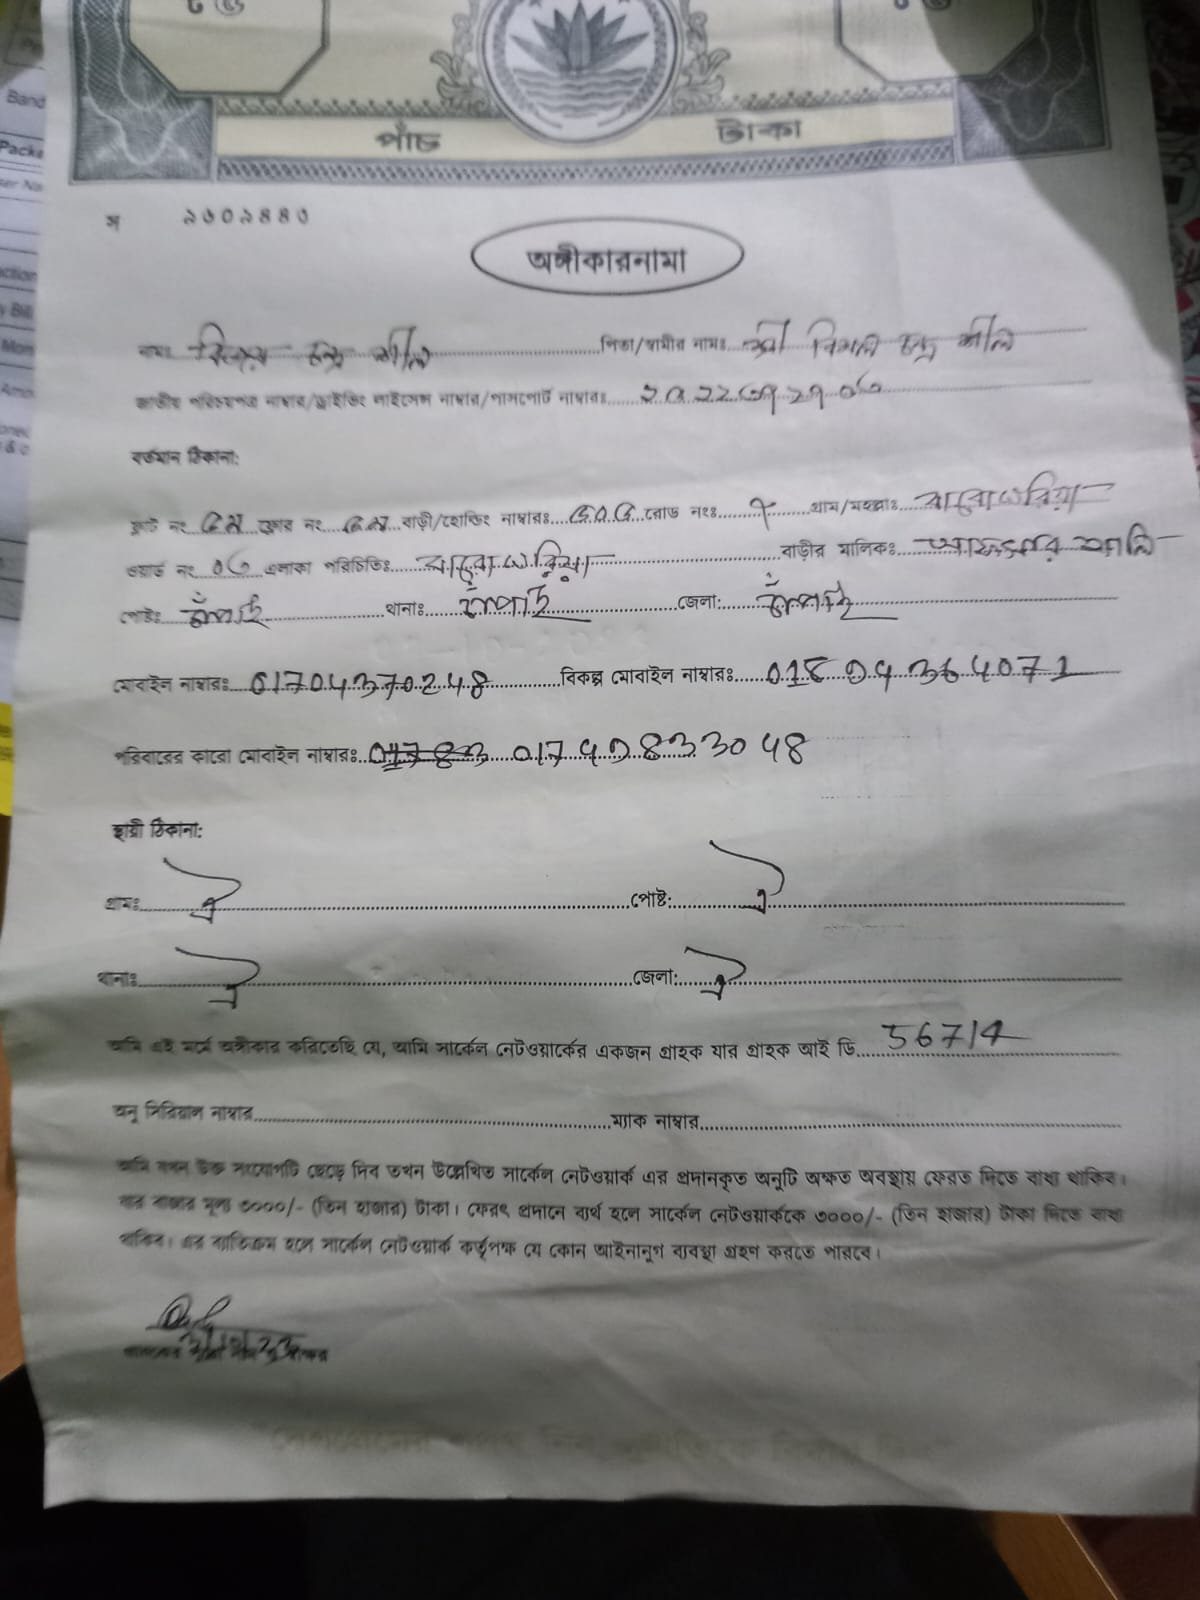 পাঁচ টাকা
অঙ্গীকারনামা
নামঃ চন্দ্র শীল পিতা/স্বামীর নামঃ শ্রী বিমল চন্দ্র শীল
জাতীয় পরিচয়পত্র নাম্বার/ড্রাইভিং লাইসেন্স নাম্বার/পাসপোর্ট নাম্বারঃ
বর্তমান ঠিকানা:
ফ্লাট নং ফ্লোর নং বাড়ী/হোল্ডিং নাম্বারঃ রোড নংঃ গ্রাম/মহল্লাঃ বারোঘরিয়া
ওয়ার্ড নং ০৩ এলাকা পরিচিতিঃ বারোঘরিয়া বাড়ীর মালিকঃ
পোষ্টঃ চাঁপাই থানাঃ চাঁপাই জেলা: চাঁপাই
মোবাইল নাম্বারঃ 01704370248 বিকল্প মোবাইল নাম্বারঃ
পরিবারের কারো মোবাইল নাম্বারঃ
স্থায়ী ঠিকানা:
গ্রামঃ ঐ পোষ্ট: ঐ
থানাঃ ঐ জেলা: ঐ
আমি এই মর্মে অঙ্গীকার করিতেছি যে, আমি সার্কেল নেটওয়ার্কের একজন গ্রাহক যার গ্রাহক আই ডি 56714
অনু সিরিয়াল নাম্বার ম্যাক নাম্বার
আমি যখন উক্ত সংযোগটি ছেড়ে দিব তখন উল্লেখিত সার্কেল নেটওয়ার্ক এর প্রদানকৃত অনুটি অক্ষত অবস্থায় ফেরত দিতে বাধ্য থাকিব।
যার বাজার মূল্য ৩০০০/- (তিন হাজার) টাকা। ফেরৎ প্রদানে ব্যর্থ হলে সার্কেল নেটওয়ার্ককে ৩০০০/- (তিন হাজার) টাকা দিতে বাধ্য
থাকিব। এর ব্যতিক্রম হলে সার্কেল নেটওয়ার্ক কর্তৃপক্ষ যে কোন আইনানুগ ব্যবস্থা গ্রহণ করতে পারবে।